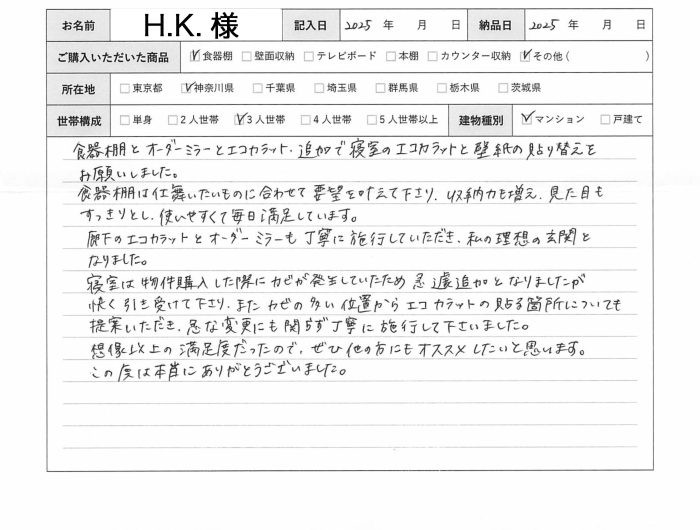 お名前 H.K. 様 記入日 2025 年 月 日 納品日 2025 年 月 日
ご購入いただいた商品 ☑食器棚 □壁面収納 □テレビボード □本棚 □カウンター収納 ☑その他 ( )
所在地 □東京都 ☑神奈川県 □千葉県 □埼玉県 □群馬県 □栃木県 □茨城県
世帯構成 □単身 □2人世帯 ☑3人世帯 □4人世帯 □5人世帯以上 建物種別 ☑マンション □戸建て
食器棚とオーダーミラーとエコカラット、追加で寝室のエコカラットと壁紙の貼り替えを
お願いしました。
食器棚は仕舞いたいものに合わせて要望を叶えて下さり、収納力も増え、見た目も
すっきりとし、使いやすくて毎日満足しています。
廊下のエコカラットとオーダーミラーも丁寧に施行していただき、私の理想の玄関と
なりました。
寝室は物件購入した際にカビが発生していたため急遽追加となりましたが
快く引き受けて下さり、またカビの多い位置からエコカラットの貼る箇所についても
提案いただき、急な変更にも関らず丁寧に施行して下さいました。
想像以上の満足度だったので、ぜひ他の方にもオススメしたいと思います。
この度は本当にありがとうございました。